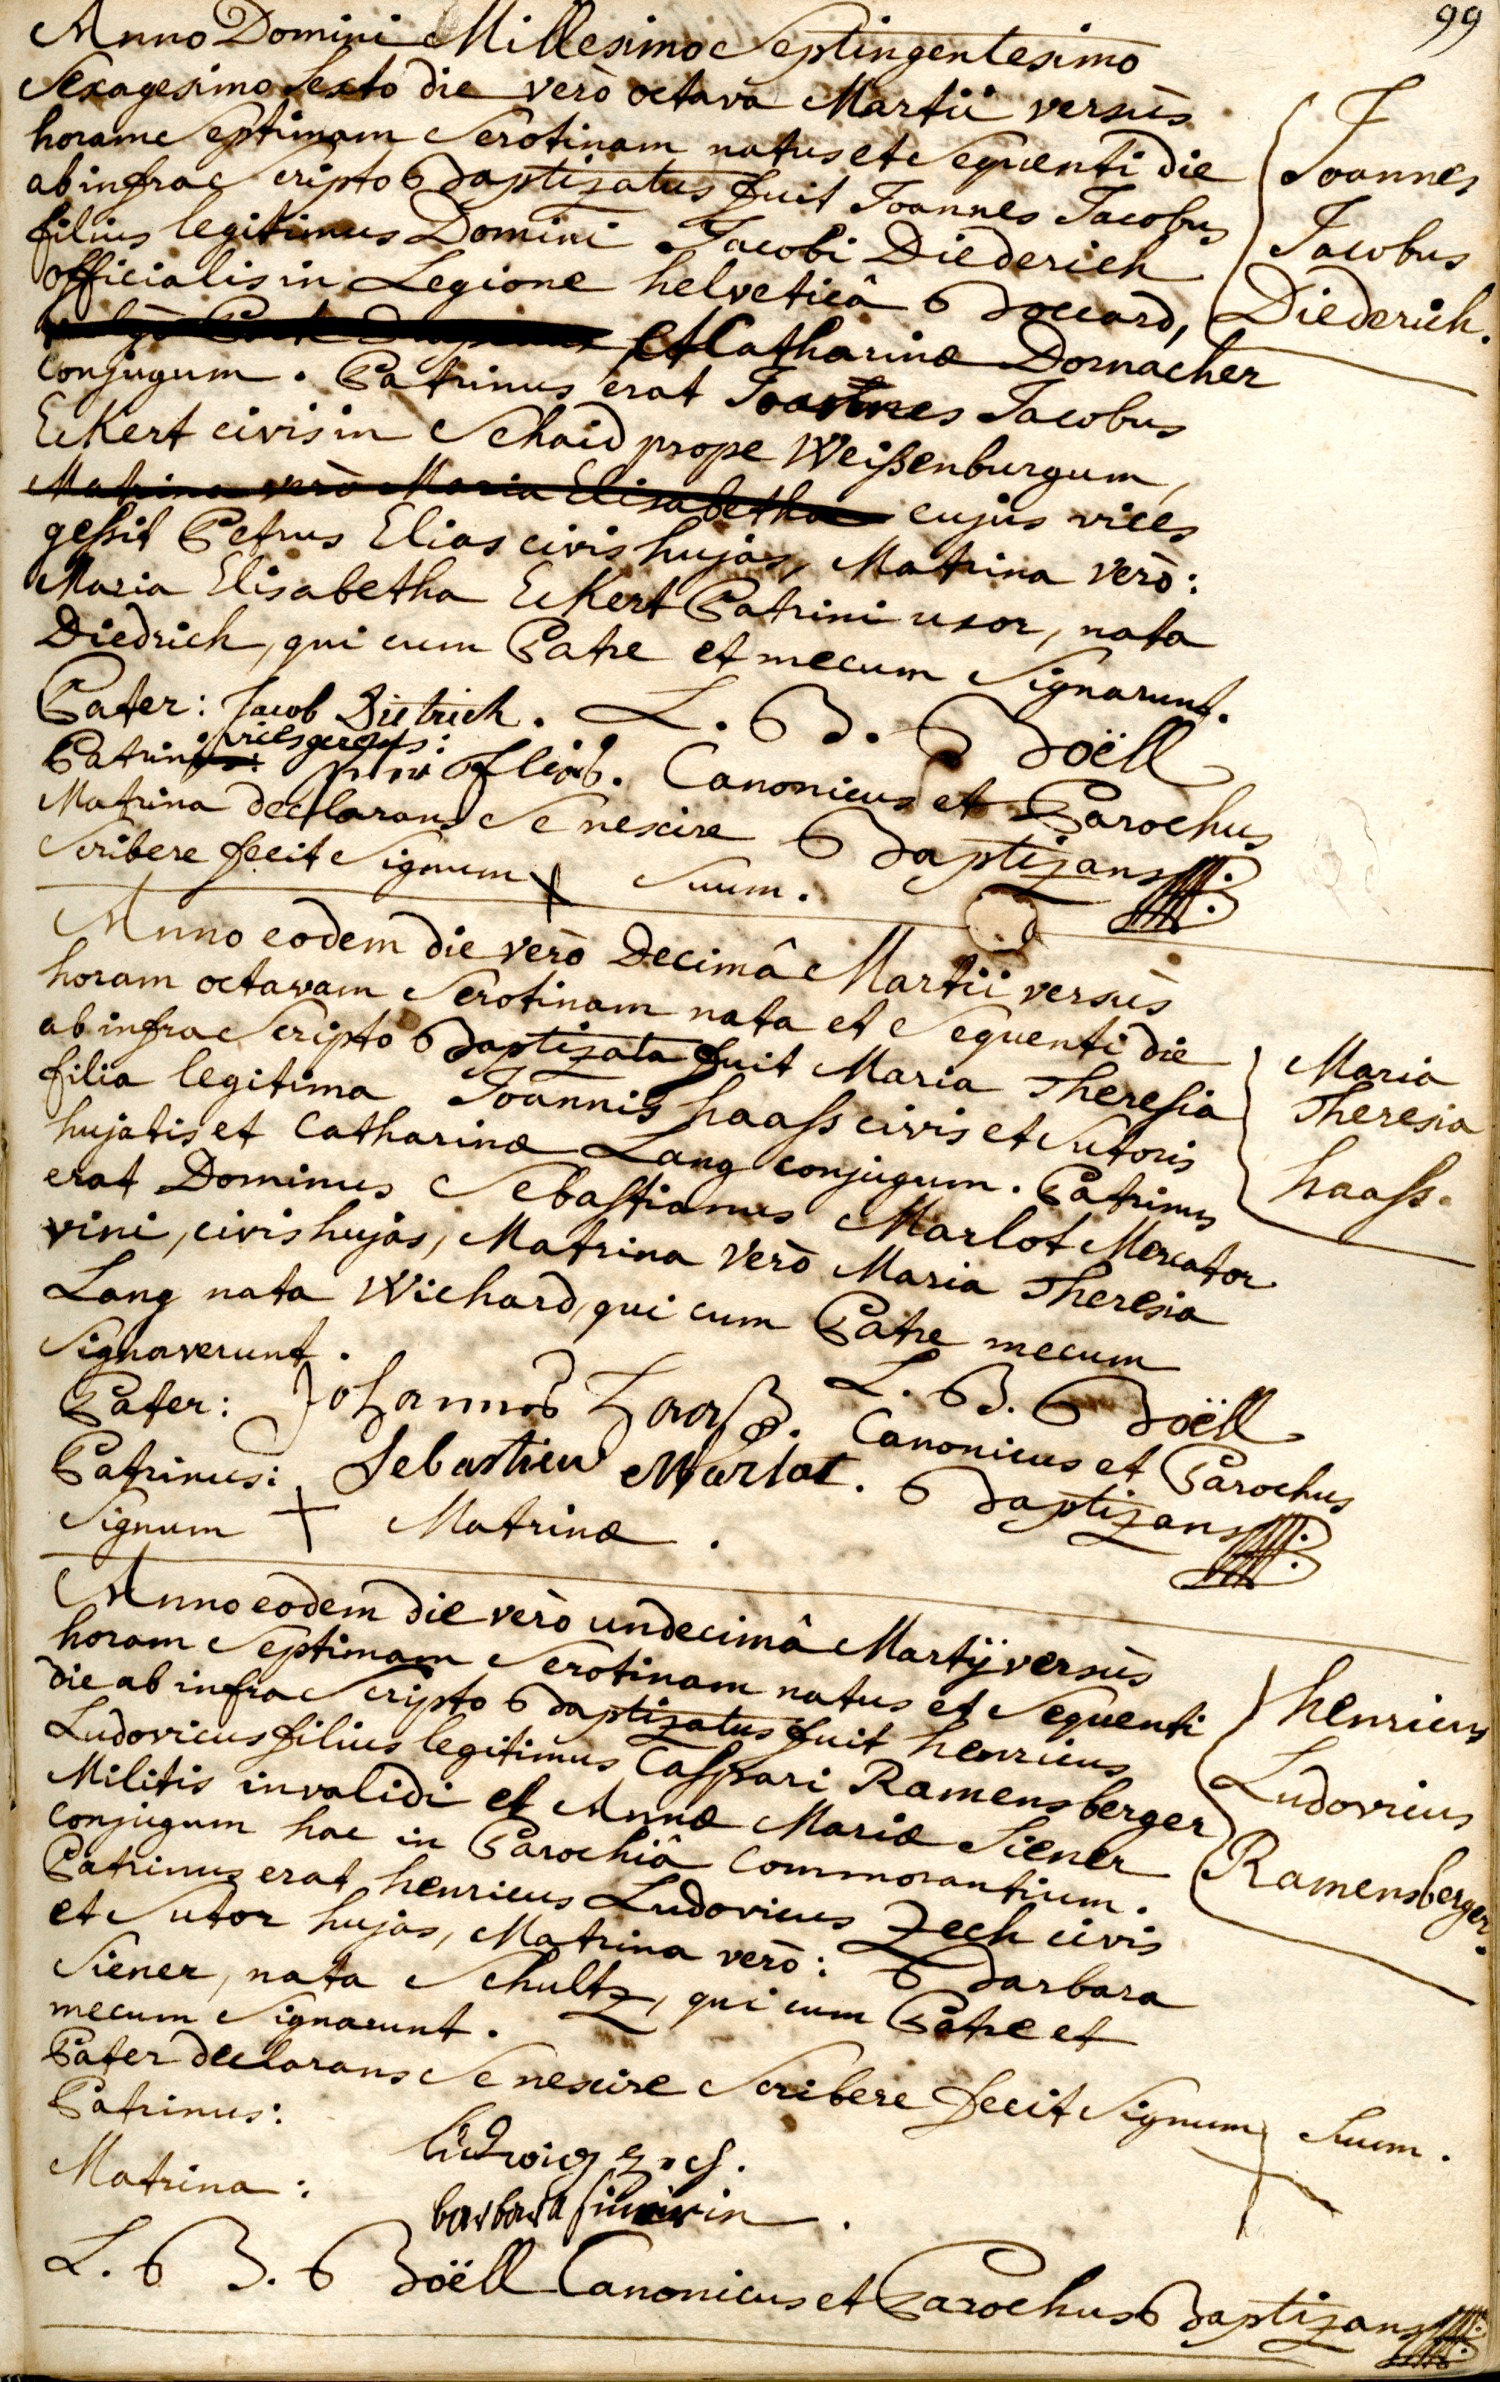 99
Anno Domini Millesimo Septingentesimo
Sexagesimo Sexto die verò octava Martii versùs
horam Septimam Serotinam natus et Sequenti die
ab infra Scripto Baptizatus fuit Joannes Jacobus
filius legitimus Domini Jacobi Diederich
officialis in Legione helveticâ Boccard,
et Catharinæ Dornacher
conjugum. Patrinus erat Joannes Jacobus
Eckert civis in Schaid prope Weißenburgum,
Matrina verò Maria Elisabetha cujus vices
geßit Petrus Elias civis hujas, Matrina verò:
Maria Elisabetha Eckert Patrini uxor, nata
Diedrich, qui cum Patre et mecum Signarunt.
Joannes
Jacobus
Diederich.
Pater: Jacob Dietrich. L. B. Boëll
Patrini vices gerens: Elias. Canonicus et Parochus
Matrina declarans Se nescire Baptizans
Scribere fecit Signum + Suum.
Anno eodem die verò Decimâ Martii versùs
horam octavam Serotinam nata et Sequenti die
ab infra Scripto Baptizata fuit Maria Theresia
filia legitima Joannis haaß civis et Sutoris
hujatis et Catharinæ Lang conjugum. Patrinus
erat Dominus Sebastianus Marlot Mercator
vini, civis hujas, Matrina verò Maria Theresia
Lang nata Wichard, qui cum Patre mecum
Signaverunt.
Maria
Theresia
haaß.
Pater: Johannes Haaß. L. B. Boëll
Patrinus: Sebastien Marlot. Canonicus et Parochus
Signum + Matrinæ. Baptizans
Anno eodem die verò undecimâ Martij versùs
horam Septimam Serotinam natus et Sequenti
die ab infra Scripto Baptizatus fuit henricus
Ludovicus filius legitimus Caspari Ramensberger
Militis invalidi et Annæ Mariæ Siener
conjugum hac in Parochiâ commorantium.
Patrinus erat henricus Ludovicus Zech civis
et Sutor hujas, Matrina verò: Barbara
Siener, nata Schultz, qui cum Patre et
mecum Signarunt.
henricus
Ludovicus
Ramensberger.
Pater declarans Se nescire Scribere fecit Signum + Suum.
Patrinus: Ludwig Zech.
Matrina: barbara sienerin.
L. B. Boëll Canonicus et Parochus Baptizans